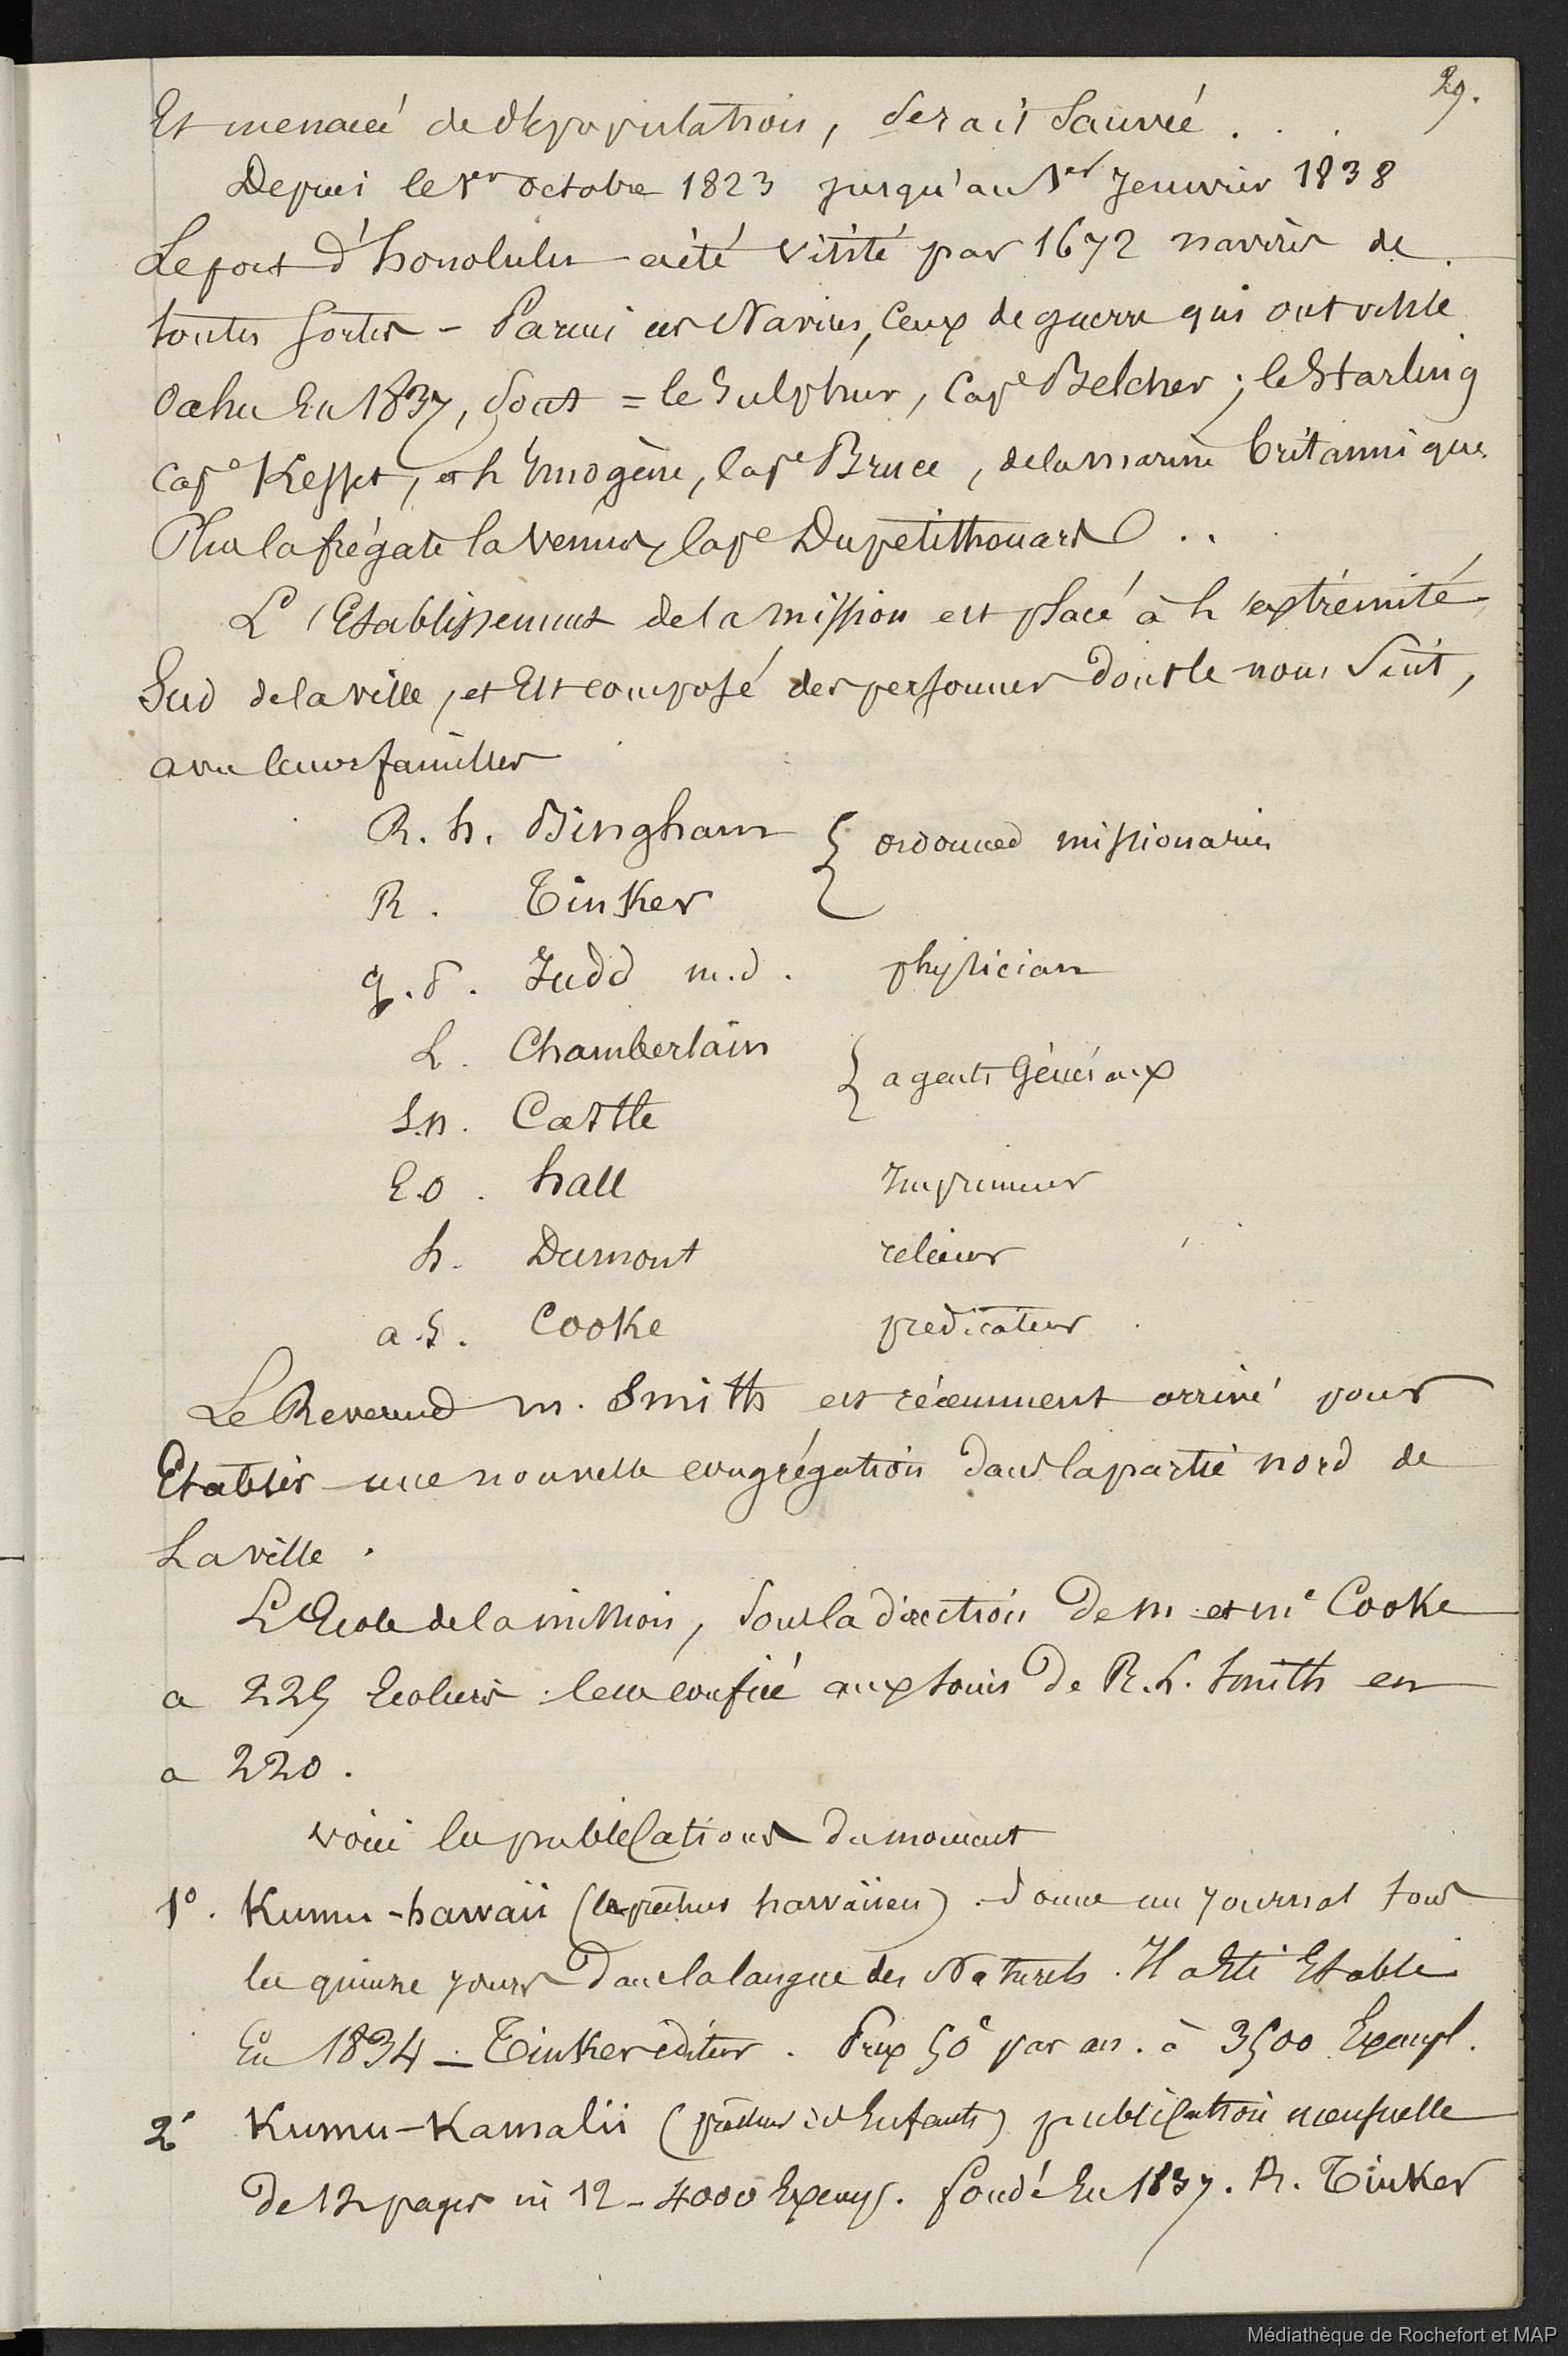 29.
Est menacé de dépopulation, serait sauvé . . .
Depuis le 1er octobre 1823 jusqu'au 1er Janvier 1838
Le port d'honolulu a été visité par 1672 navires de
toutes sortes - Parmi ces Navires, ceux de guerre qui ont visité
Oahu En 1837, sont = le Sulphur, Cape Belcher ; le Starling
Cape Keppet, et l'Imogène, Cape Bruce, de la marine britannique
Plus la frégate la Venus, Cape Dupetitthouars ..
L'Etablissement de la mission est placé à l'extrémité
Sud de la ville, et Est composé des personnes dont le nom suit,
avec leurs familles
R. h. Bingham { ordonned missionaries
R. Tinker
g. d. Judd m.d. physician
L. Chamberlain { agents Généraux
S.n. Castle
E.O. hall Imprimeur
h. Dumont relieur
a.S. Cooke predicateur
Le Reverend m. Smith est récemment arrivé pour
Etablir une nouvelle congrégation dans la partie nord de
La ville .
L'Ecole de la mission, sous la direction de m. et me Cooke
a 225 Ecoliers. celle confiée aux soins de R. L. Smith en
a 220 .
voici les publications du moment
1° . Kumu-hawaii (le précheur hawaiien) . donne un journal tous
les quinze jours dans la langue des Naturels . Il a Eté Etabli
En 1834 - Tinker éditeur . Prix 50c par an . à 3500 Exempl.
2° Kumu-Kamalii ( Enfants) publication mensuelle
de 12 pages in 12 - 4000 Exemp. fondé En 1837 . R. Tinker
Médiathèque de Rochefort et MAP